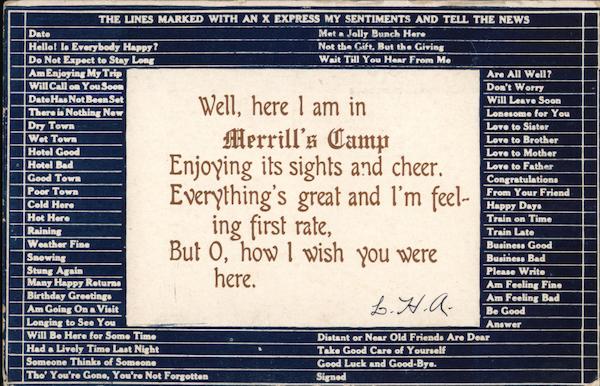 THE LINES MARKED WITH AN X EXPRESS MY SENTIMENTS AND TELL THE NEWS
Date
Hello! Is Everybody Happy?
Do Not Expect to Stay Long
Met a Jolly Bunch Here
Not the Gift, But the Giving
Wait Till You Hear From Me
Am Enjoying My Trip
Will Call on You Soon
Date Has Not Been Set
There is Nothing New
Dry Town
Wet Town
Hotel Good
Hotel Bad
Good Town
Poor Town
Cold Here
Hot Here
Raining
Weather Fine
Snowing
Stung Again
Many Happy Returns
Birthday Greetings
Am Going On a Visit
Longing to See You
Well, here I am in
Merrill's Camp
Enjoying its sights and cheer.
Everything's great and I'm feel-
ing first rate,
But O, how I wish you were
here.
L. H. A.
Are All Well?
Don't Worry
Will Leave Soon
Lonesome for You
Love to Sister
Love to Brother
Love to Mother
Love to Father
Congratulations
From Your Friend
Happy Days
Train on Time
Train Late
Business Good
Business Bad
Please Write
Am Feeling Fine
Am Feeling Bad
Be Good
Answer
Will Be Here for Some Time
Had a Lively Time Last Night
Someone Thinks of Someone
Tho' You're Gone, You're Not Forgotten
Distant or Near Old Friends Are Dear
Take Good Care of Yourself
Good Luck and Good-Bye.
Signed